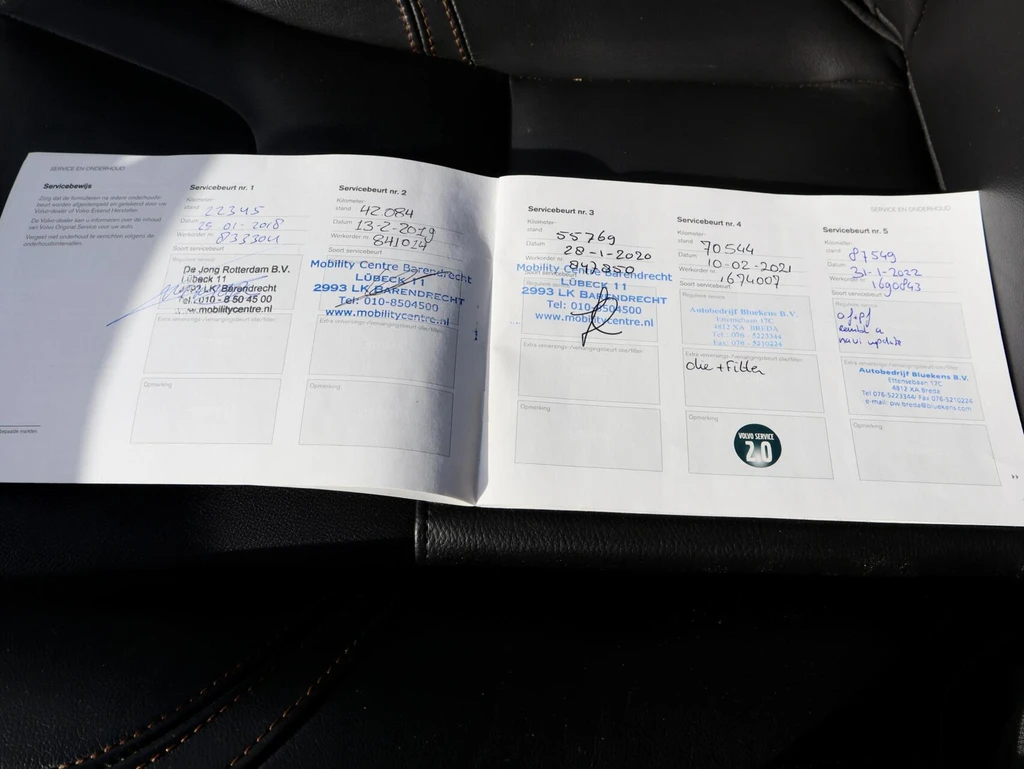 SERVICE EN ONDERHOUD
Servicebewijs
Zorg dat de formulieren na iedere onderhouds-
beurt worden afgestempeld en getekend door uw
Volvo-dealer of Volvo Erkend Hersteller.
De Volvo-dealer kan u informeren over de inhoud
van Volvo Original Service voor uw auto.
Vergeet niet onderhoud te verrichten volgens de
onderhoudsintervallen.
bepaalde markten.
Servicebeurt nr. 1
Kilometer-
stand 22345
Datum 25-01-2018
Werkorder nr. 833304
Soort servicebeurt
Reguliere service
De Jong Rotterdam B.V.
Lübeck 11
2993 LK Barendrecht
Tel: 010 - 8 50 45 00
www.mobilitycentre.nl
Extra verversings-/vervangingsbeurt olie/filter
Opmerking
Servicebeurt nr. 2
Kilometer-
stand 42084
Datum 13-2-2019
Werkorder nr. 841014
Soort servicebeurt
Mobility Centre Barendrecht
LÜBECK 11
2993 LK BARENDRECHT
Tel: 010-8504500
www.mobilitycentre.nl
Extra verversings-/vervangingsbeurt olie/filter
Opmerking
Servicebeurt nr. 3
Kilometer-
stand 55769
Datum 28-1-2020
Werkorder nr. 847850
Mobility Centre Barendrecht
LÜBECK 11
2993 LK BARENDRECHT
Tel: 010-8504500
www.mobilitycentre.nl
Extra verversings-/vervangingsbeurt olie/filter
Opmerking
Servicebeurt nr. 4
Kilometer-
stand 70544
Datum 10-02-2021
Werkorder nr. 1674007
Soort servicebeurt
Reguliere service
Autobedrijf Bluekens B.V.
Ettensebaan 17C
4812 XA BREDA
Tel.: 076 - 5223344
Fax: 076 - 5210224
Extra verversings-/vervangingsbeurt olie/filter
olie + filter
Opmerking
VOLVO SERVICE
2.0
SERVICE EN ONDERHOUD
Servicebeurt nr. 5
Kilometer-
stand 87549
Datum 31-1-2022
Werkorder nr. 1690843
Soort servicebeurt
Reguliere service
navi update
Extra verversings-/vervangingsbeurt olie/filter
Autobedrijf Bluekens B.V.
Ettensebaan 17C
4812 XA Breda
Tel 076-5223344/ Fax 076-5210224
e-mail: pw.breda@bluekens.com
Opmerking
>>